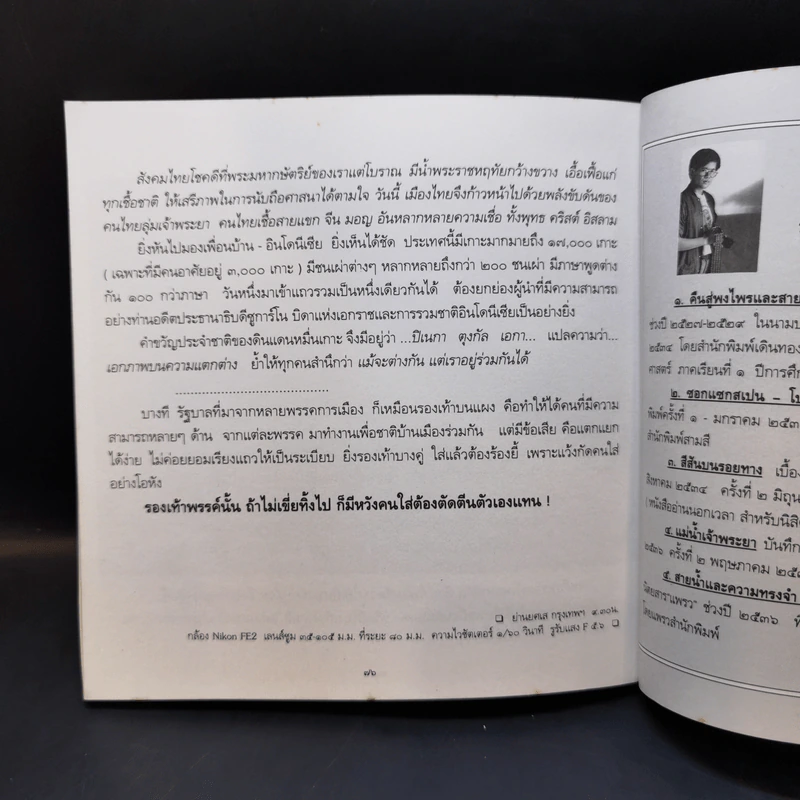 สังคมไทยโชคดีที่พระมหากษัตริย์ของเราแต่โบราณ มีน้ำพระราชหฤทัยกว้างขวาง เอื้อเฟื้อแก่
ทุกเชื้อชาติ ให้เสรีภาพในการนับถือศาสนาได้ตามใจ วันนี้ เมืองไทยจึงก้าวหน้าไปด้วยพลังขับดันของ
คนไทยลุ่มเจ้าพระยา คนไทยเชื้อสายแขก จีน มอญ อันหลากหลายความเชื่อ ทั้งพุทธ คริสต์ อิสลาม
ยิ่งหันไปมองเพื่อนบ้าน - อินโดนีเซีย ยิ่งเห็นได้ชัด ประเทศนี้มีเกาะมากมายถึง ๑๗,๐๐๐ เกาะ
( เฉพาะที่มีคนอาศัยอยู่ ๓,๐๐๐ เกาะ ) มีชนเผ่าต่างๆ หลากหลายถึงกว่า ๒๐๐ ชนเผ่า มีภาษาพูดต่าง
กัน ๑๐๐ กว่าภาษา วันหนึ่งมาเข้าแถวรวมเป็นหนึ่งเดียวกันได้ ต้องยกย่องผู้นำที่มีความสามารถ
อย่างท่านอดีตประธานาธิบดีซูการ์โน บิดาแห่งเอกราชและการรวมชาติอินโดนีเซียเป็นอย่างยิ่ง
คำขวัญประจำชาติของดินแดนหมื่นเกาะ จึงมีอยู่ว่า ...บีเนกา ตุงกัล เอกา... แปลความว่า...
เอกภาพบนความแตกต่าง ย้ำให้ทุกคนสำนึกว่า แม้จะต่างกัน แต่เราอยู่ร่วมกันได้
.......................................
บางที รัฐบาลที่มาจากหลายพรรคการเมือง ก็เหมือนรองเท้าบนแผง คือทำให้ได้คนที่มีความ
สามารถหลายๆ ด้าน จากแต่ละพรรค มาทำงานเพื่อชาติบ้านเมืองร่วมกัน แต่มีข้อเสีย คือแตกแยก
ได้ง่าย ไม่ค่อยยอมเรียงแถวให้เป็นระเบียบ ยิ่งรองเท้าบางคู่ ใส่แล้วต้องร้องยี้ เพราะแว้งกัดคนใส่
อย่างโอหัง
รองเท้าพรรค์นั้น ถ้าไม่เขี่ยทิ้งไป ก็มีหวังคนใส่ต้องตัดตีนตัวเองแทน !
❑ ย่านยศเส กรุงเทพฯ ๔.๓๐น.
กล้อง Nikon FE2 เลนส์ซูม ๓๕-๑๐๕ ม.ม. ที่ระยะ ๘๐ ม.ม. ความไวชัตเตอร์ ๑/๖๐ วินาที รูรับแสง F ๕.๖ ❑
๗๖
๑. คืนสู่พงไพรและสาย
ช่วงปี ๒๕๒๗-๒๕๒๙ ในนามป
๒๕๓๔ โดยสำนักพิมพ์เดินทอง
ศาสตร์ ภาคเรียนที่ ๑ ปีการศึ
๒. ซอกแซกสเปน – โป
พิมพ์ครั้งที่ ๑ - มกราคม ๒๕๓
สำนักพิมพ์สามสี
๓. สีสันบนรอยทาง เบื้อง
สิงหาคม ๒๕๓๔ ครั้งที่ ๒ มิถุน
หนังสืออ่านนอกเวลา สำหรับนิสิ
๔. แม่น้ำเจ้าพระยา บันทึก
๒๕๓๖ ครั้งที่ ๒ พฤษภาคม ๒๕๓
๕. สายน้ำและความทรงจำ
นิตยสารแพรว" ช่วงปี ๒๕๓๖ พิ
โดยแพรวสำนักพิมพ์